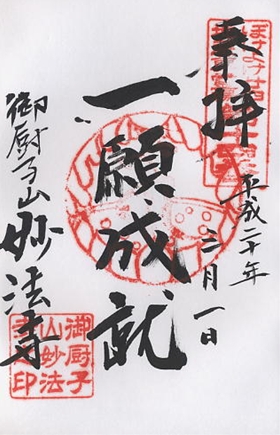 奉拝
平成二十年
三月一日
一願成就
御厨子山妙法寺
御厨子
山妙法
寺印